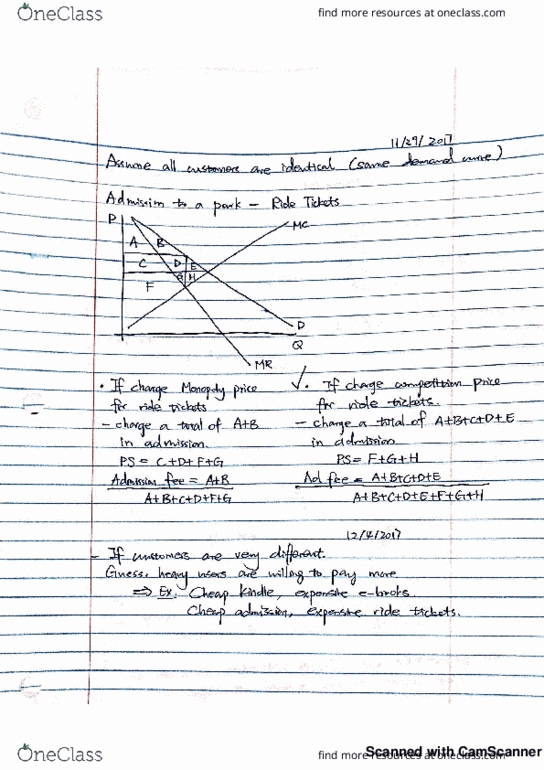 OneClass
find more resources at oneclass.com
11/29/2017
Assume all customers are identical (same demand curve)
Admission to a park - Ride Tickets
P
MC
A B
C D E
G H
F
D
Q
MR
• If charge Monopoly price
for ride tickets
- charge a total of A+B
in admission.
PS = C+D+F+G
Admission fee = A+B
A+B+C+D+F+G
✓• If charge competition price
for ride tickets.
- charge a total of A+B+C+D+E
in admission
PS = F+G+H
Ad fee = A+B+C+D+E
A+B+C+D+E+F+G+H
12/4/2017
- If customers are very different.
Guess. heavy users are willing to pay more
⇒ Ex. Cheap kindle, expensive e-books
Cheap admission, expensive ride tickets.
OneClass
find more resources at oneclass.com
Scanned with CamScanner